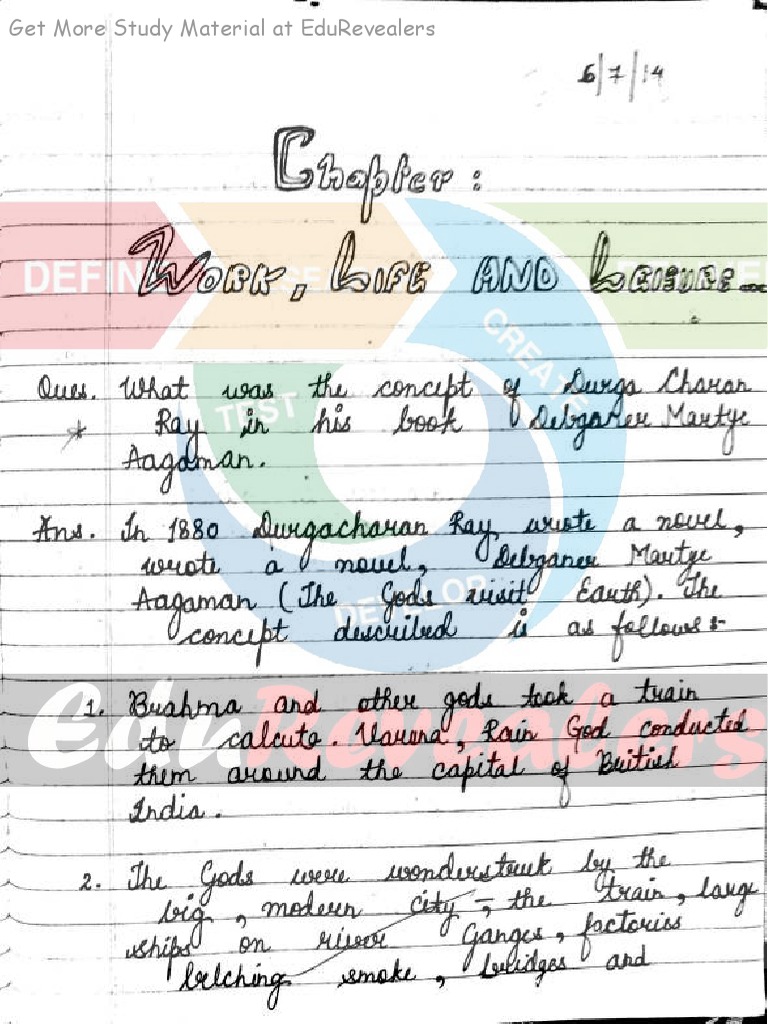 Get More Study Material at EduRevealers
6/7/14
Chapter :
WORK, LIFE AND LEISURE...
Ques. What was the concept of Durga Charan
* Ray in his book Debganer Martye
Aagaman.
Ans. In 1880 Durgacharan Ray, wrote a novel,
wrote a novel, Debganer Martye
Aagaman (The Gods visit Earth). The
concept described is as follows :-
1. Brahma and other gods took a train
to calcute. Varuna, Rain God conducted
them around the capital of British
India.
2. The Gods were wonderstruck by the
big, modern city -, the train, large
ships on river Ganges, factories
belching smoke, bridges and
DEFINE
CREATE
TEST
DEVELOP
EduRevealers